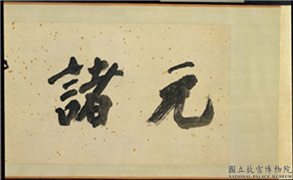 元諸
國立故宮博物院
NATIONAL PALACE MUSEUM